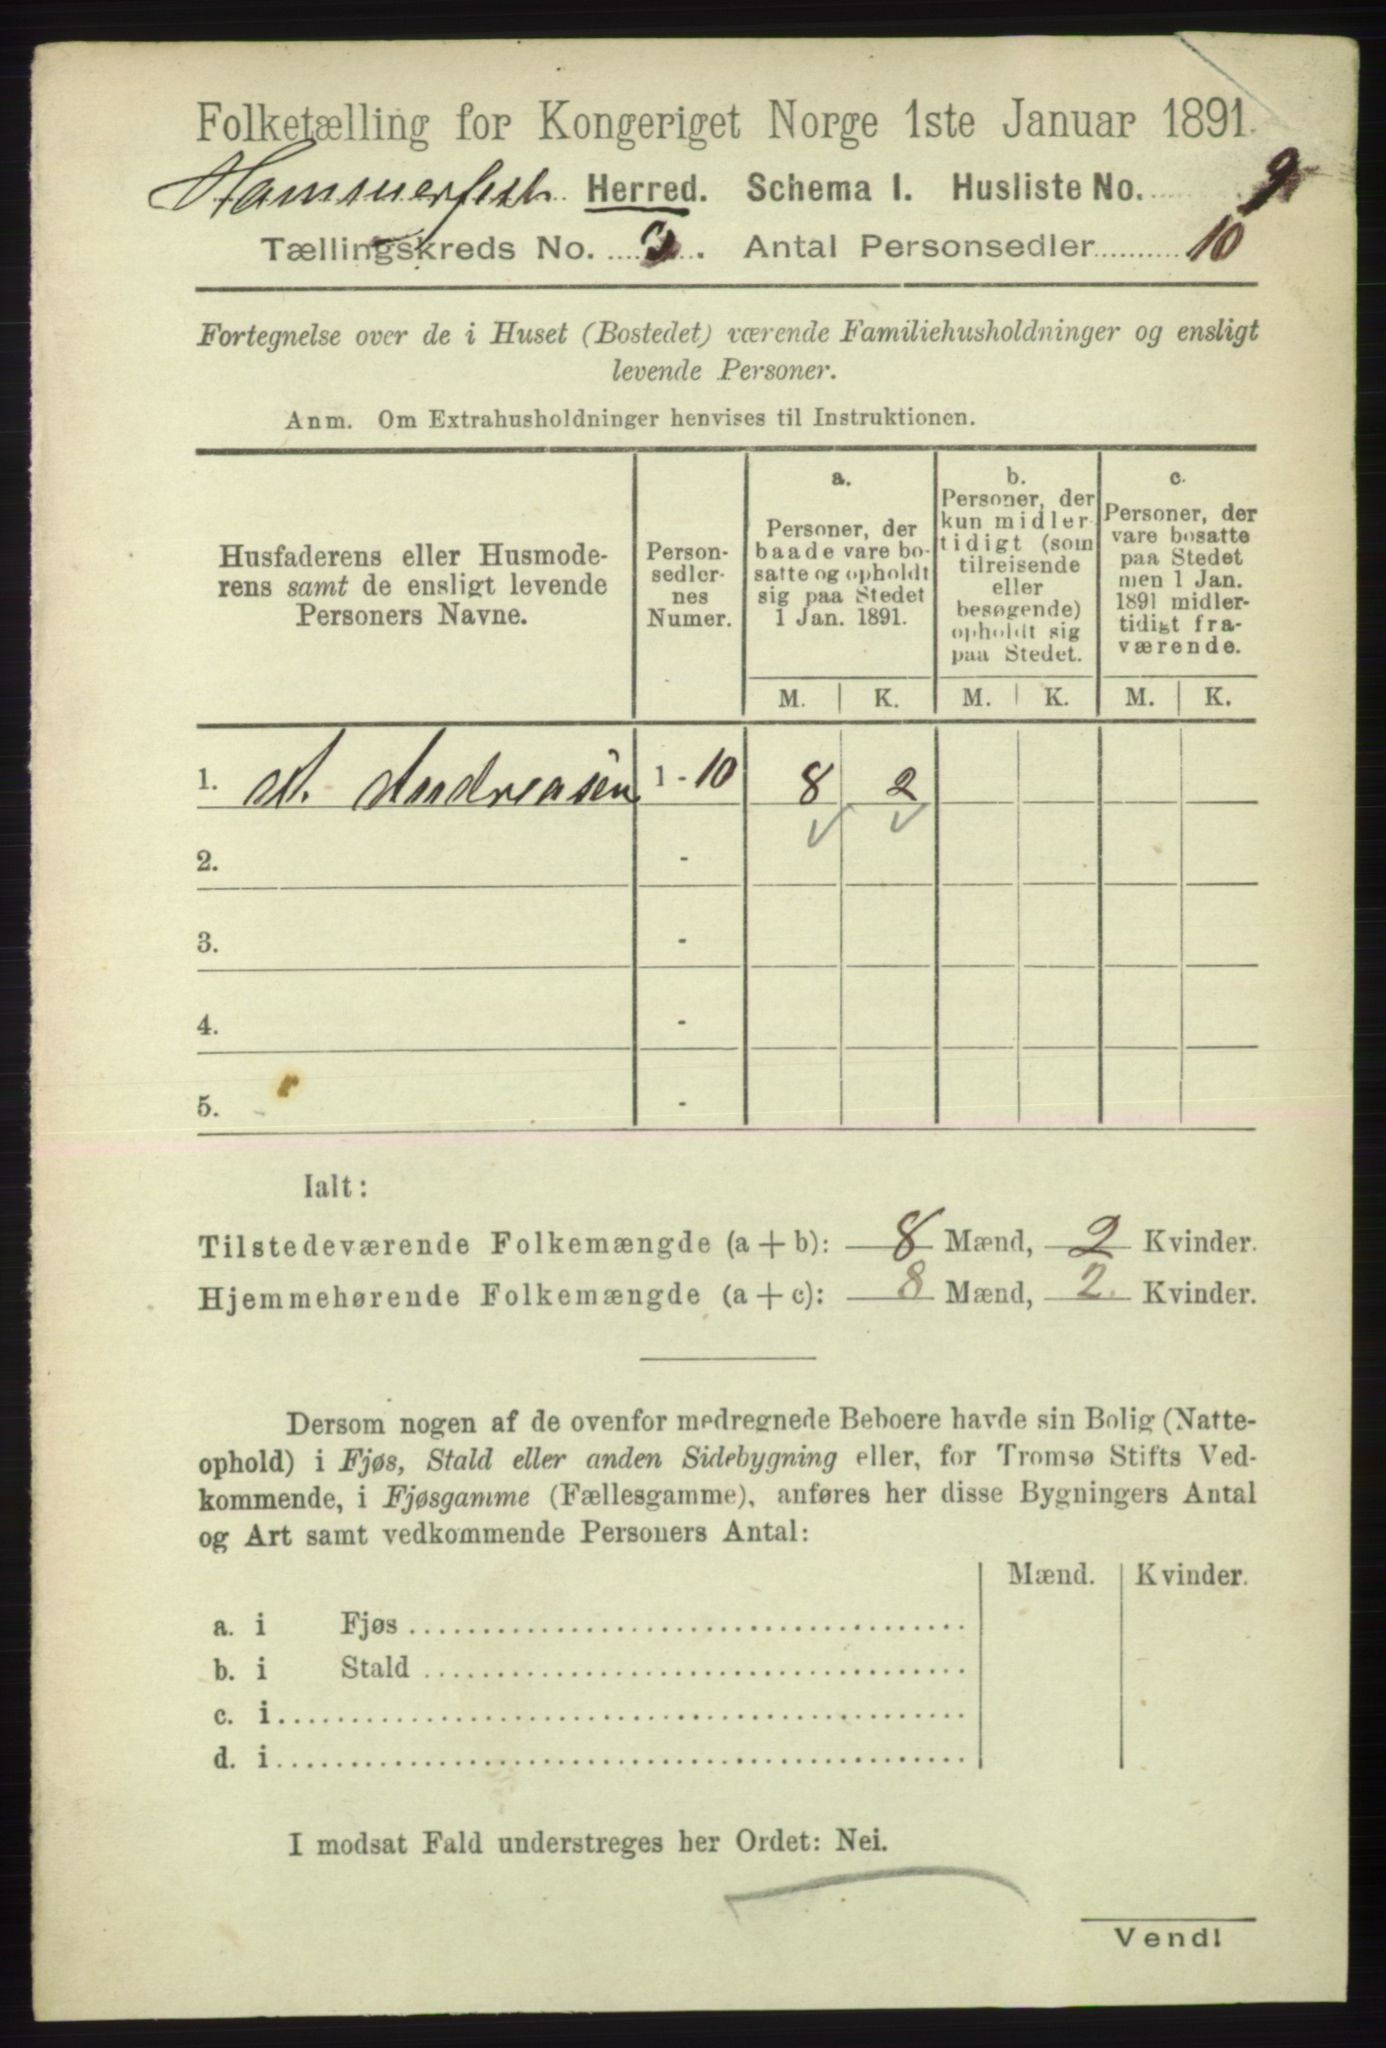 Folketælling for Kongeriget Norge 1ste Januar 1891.
Hammerfest Herred. Schema I. Husliste No. 9
Tællingskreds No. . Antal Personsedler 10
Fortegnelse over de i Huset (Bostedet) værende Familiehusholdninger og ensligt
levende Personer.
Anm. Om Extrahusholdninger henvises til Instruktionen.
Husfaderens eller Husmode-
rens samt de ensligt levende
Personers Navne.
Person-
sedler-
nes
Numer.
a.
Personer, der
baade vare bo-
satte og opholdt
sig paa Stedet
1 Jan. 1891.
b.
Personer, der
kun midler-
tidigt (som
tilreisende
eller
besøgende)
opholdt sig
paa Stedet.
c.
Personer, der
vare bosatte
paa Stedet
men 1 Jan.
1891 midler-
tidigt fra-
værende.
M. K. M. K. M. K.
1. A. Andreasen 1 - 10 8 2
2. -
3. -
4. -
5. -
Ialt:
Tilstedeværende Folkemængde (a + b): 8 Mænd, 2 Kvinder.
Hjemmehørende Folkemængde (a + c): 8 Mænd, 2 Kvinder.
Dersom nogen af de ovenfor medregnede Beboere havde sin Bolig (Natte-
ophold) i Fjøs, Stald eller anden Sidebygning eller, for Tromsø Stifts Ved-
kommende, i Fjøsgamme (Fællesgamme), anføres her disse Bygningers Antal
og Art samt vedkommende Personers Antal:
Mænd. Kvinder.
a. i Fjøs
b. i Stald
c. i
d. i
I modsat Fald understreges her Ordet: Nei.
Vend!